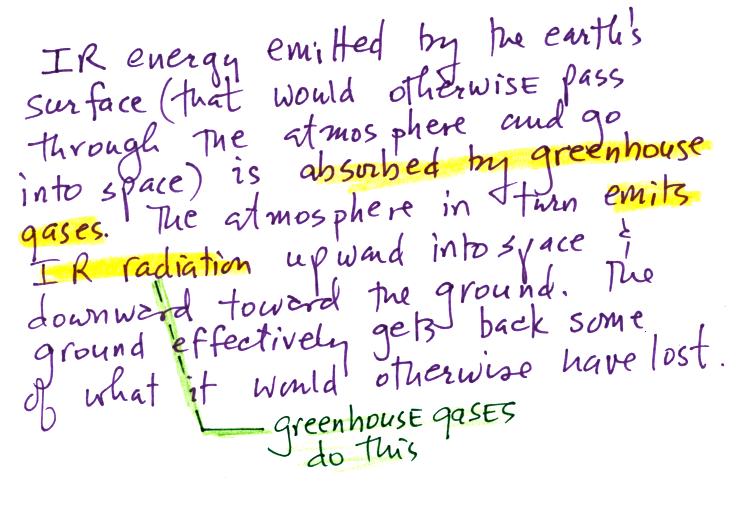 IR energy emitted by the earth's
surface (that would otherwise pass
through the atmosphere and go
into space) is absorbed by greenhouse
gases. The atmosphere in turn emits
IR radiation upward into space &
downward toward the ground. The
ground effectively gets back some
of what it would otherwise have lost.
greenhouse gases
do this